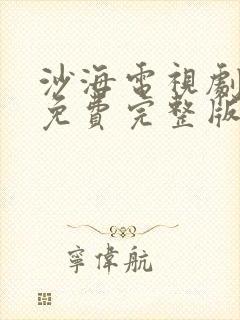 沙海電視劇
免費完整版
寧偉航